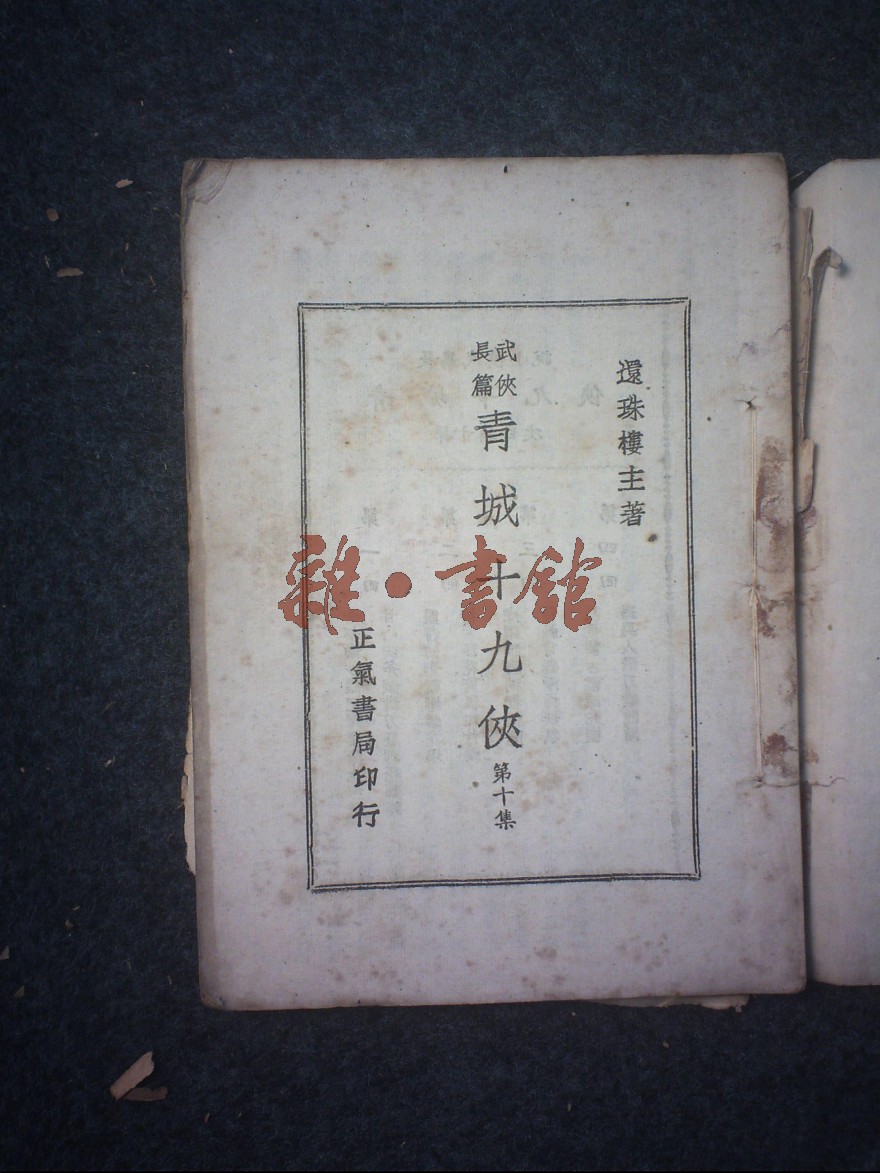 還珠樓主著
武俠
長篇
青城十九俠
第十集
正氣書局印行
雜·書館